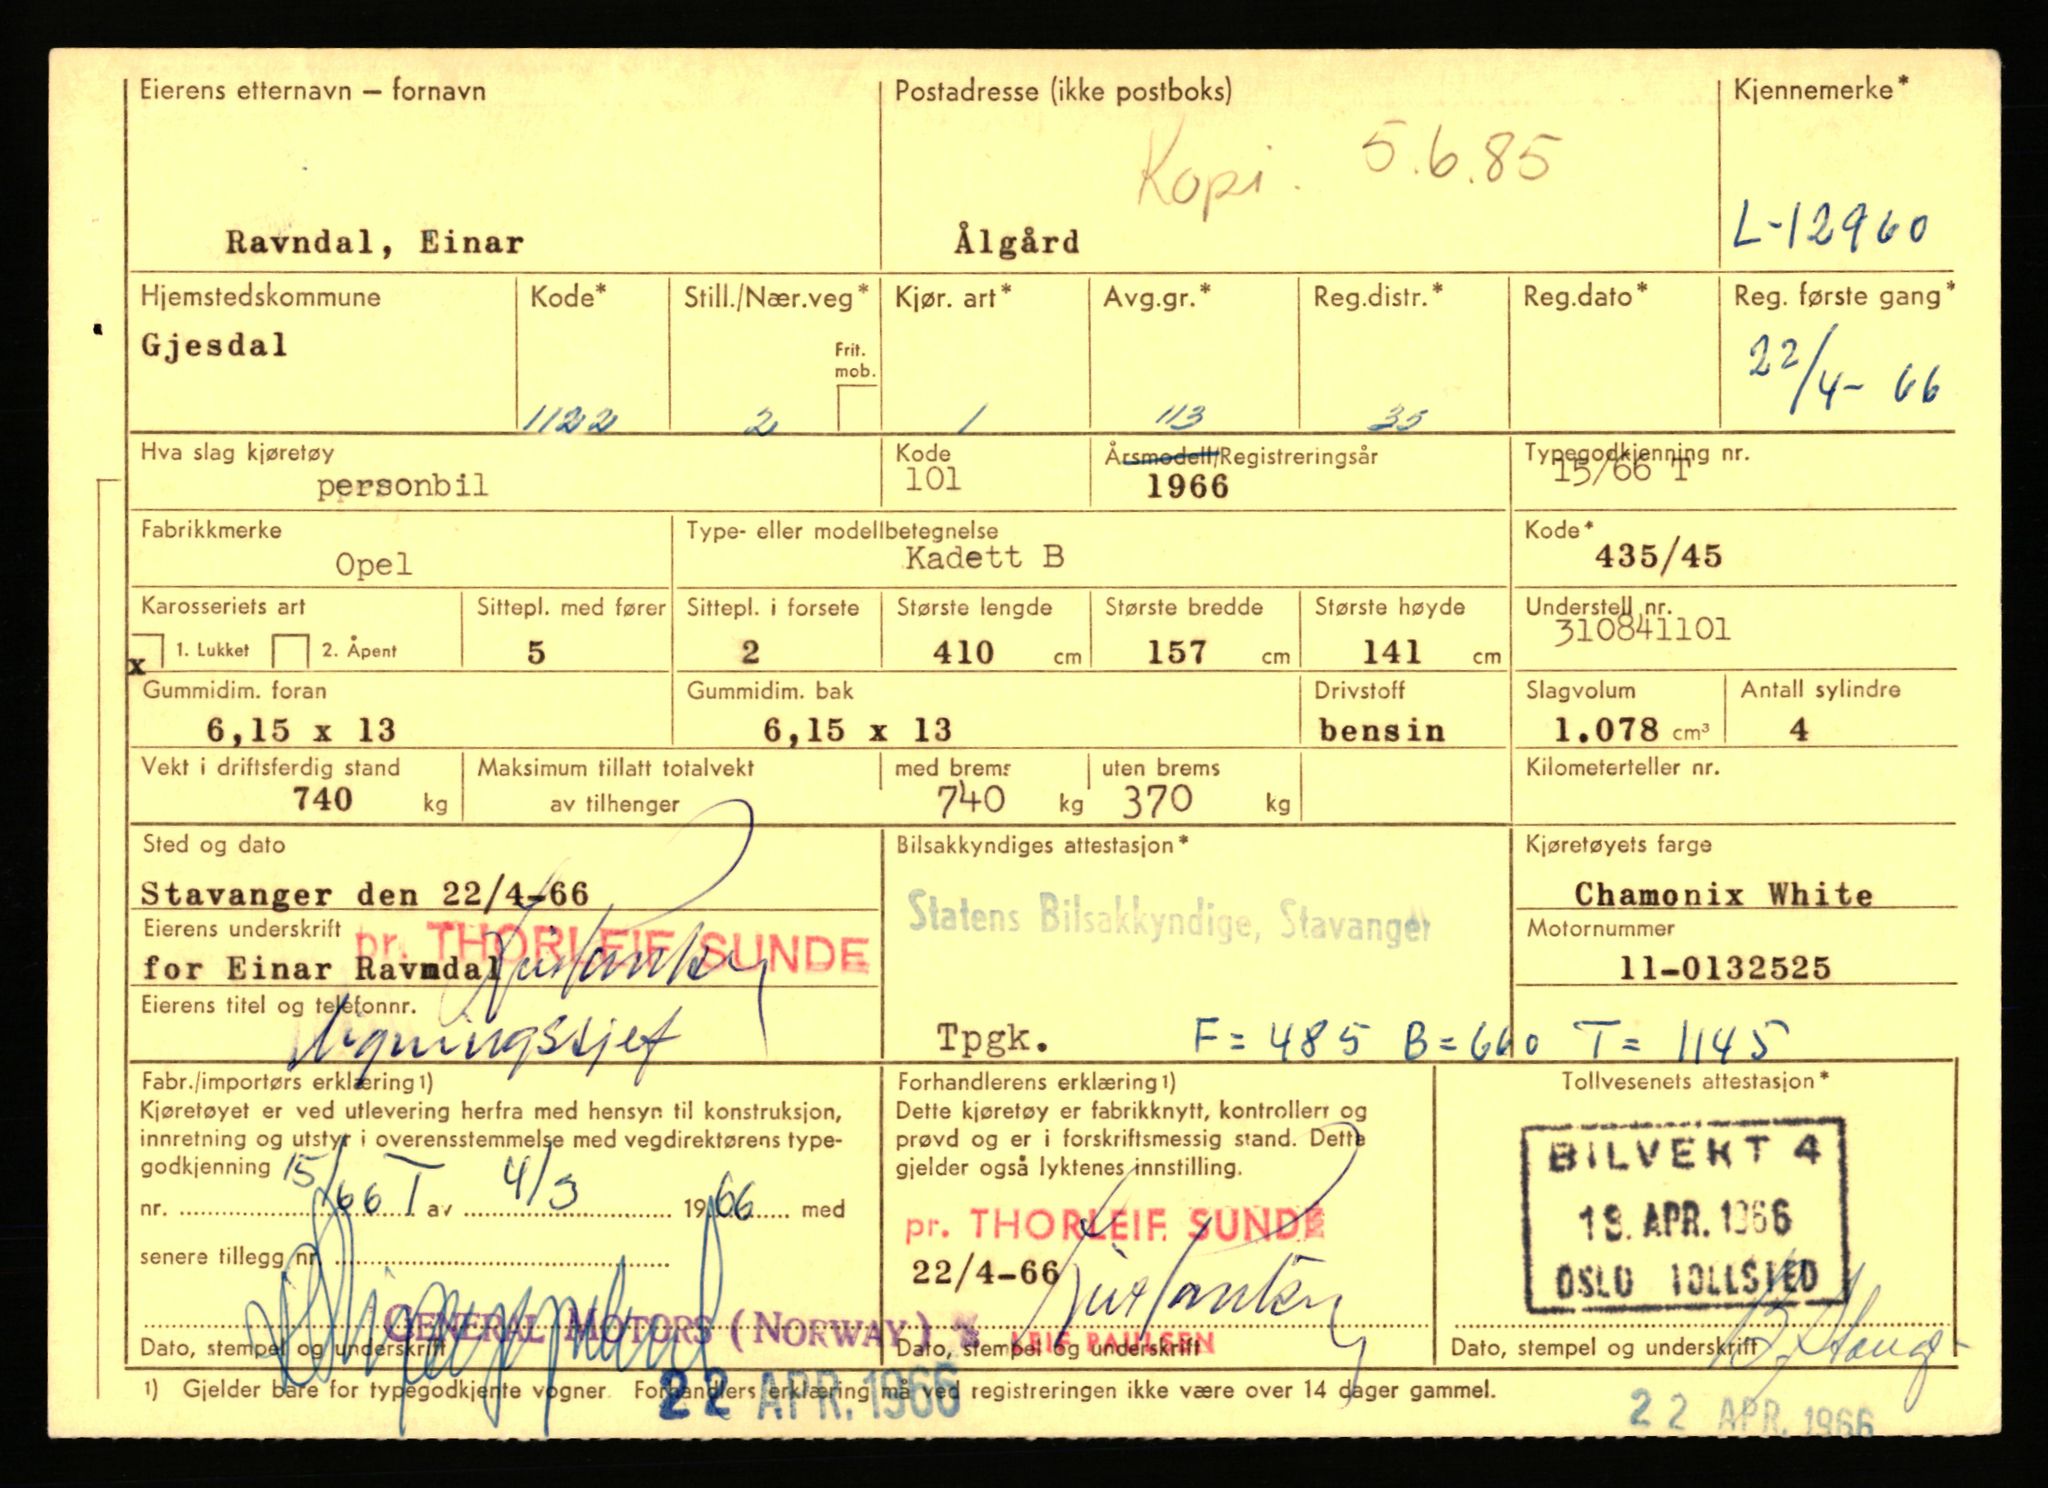 Eierens etternavn – fornavn
Postadresse (ikke postboks)
Kjennemerke*
Kopi. 5.6.85
Ravndal, Einar
Ålgård
L-12960
Hjemstedskommune
Kode*
Still./Nær.veg*
Kjør. art*
Avg.gr.*
Reg.distr.*
Reg.dato*
Reg. første gang*
Gjesdal
Frit. mob.
22/4-66
1122
2
1
113
35
Hva slag kjøretøy
Kode
Årsmodell/Registreringsår
Typegodkjenning nr.
personbil
101
1966
15/66 T
Fabrikkmerke
Type- eller modellbetegnelse
Kode*
Opel
Kadett B
435/45
Karosseriets art
Sittepl. med fører
Sittepl. i forsete
Største lengde
Største bredde
Største høyde
Understell nr.
310841101
x 1. Lukket 2. Åpent
5
2
410 cm
157 cm
141 cm
Gummidim. foran
Gummidim. bak
Drivstoff
Slagvolum
Antall sylindre
6,15 x 13
6,15 x 13
bensin
1.078 cm³
4
Vekt i driftsferdig stand
Maksimum tillatt totalvekt
med brems
uten brems
Kilometerteller nr.
740 kg
av tilhenger
740 kg
370 kg
Sted og dato
Bilsakkyndiges attestasjon*
Kjøretøyets farge
Stavanger den 22/4-66
Statens Bilsakkyndige, Stavanger
Chamonix White
Eierens underskrift
pr. THORLEIF SUNDE
Motornummer
for Einar Ravndal
11-0132525
Eierens titel og telefonnr.
ligningssjef
Tpgk.
F = 485 B = 660 T = 1145
Fabr./importørs erklæring1)
Forhandlerens erklæring1)
Tollvesenets attestasjon*
Kjøretøyet er ved utlevering herfra med hensyn til konstruksjon,
innretning og utstyr i overensstemmelse med vegdirektørens type-
godkjenning
nr. 15/66 T av 4/3 1966 med
senere tillegg nr.
Dette kjøretøy er fabrikknytt, kontrollert og
prøvd og er i forskriftsmessig stand. Dette
gjelder også lyktenes innstilling.
pr. THORLEIF SUNDE
22/4-66
BILVEKT 4
19. APR. 1966
OSLO TOLLSTED
GENERAL MOTORS (NORWAY)
LEIF PAULSEN
Dato, stempel og underskrift
Dato, stempel og underskrift
Dato, stempel og underskrift
1) Gjelder bare for typegodkjente vogner. Forhandlers erklæring må ved registreringen ikke være over 14 dager gammel.
22 APR. 1966
22 APR. 1966